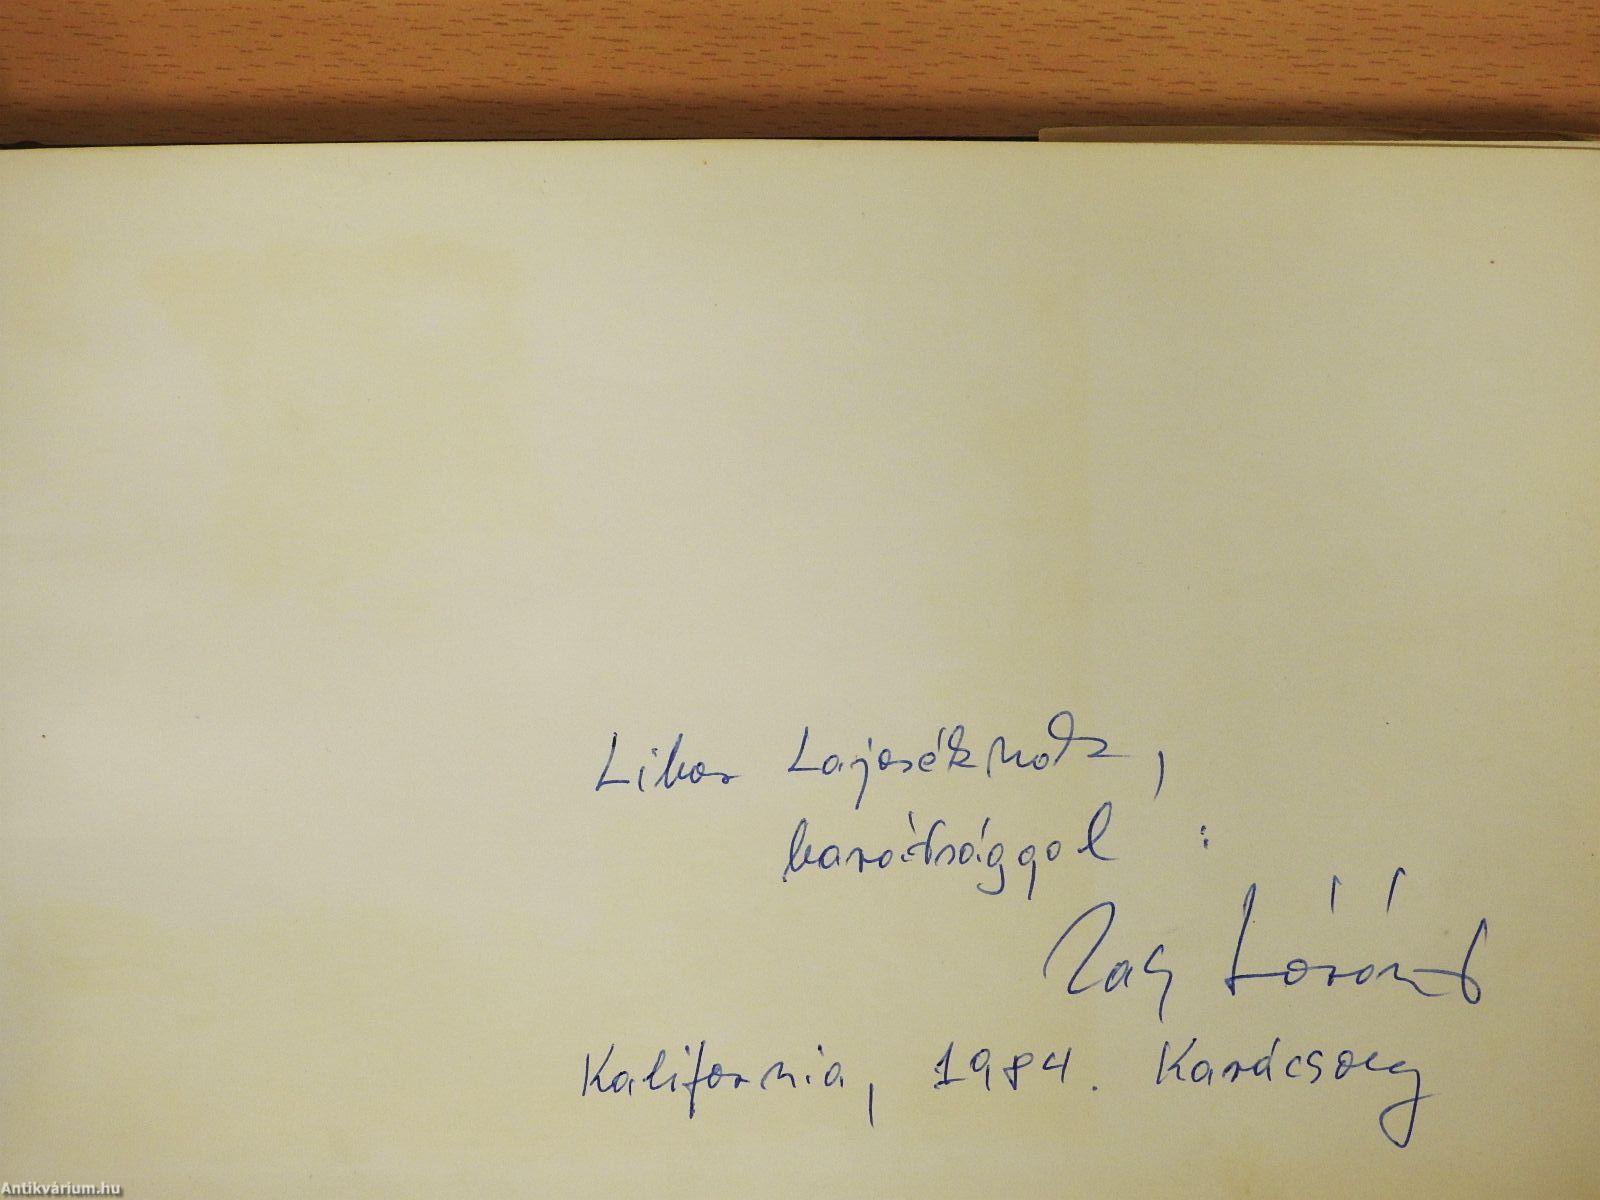 Libor Lajoséknak,
barátsággal :
Zas Lóránt
Kalifornia, 1984. Karácsony
Antikvárium.hu